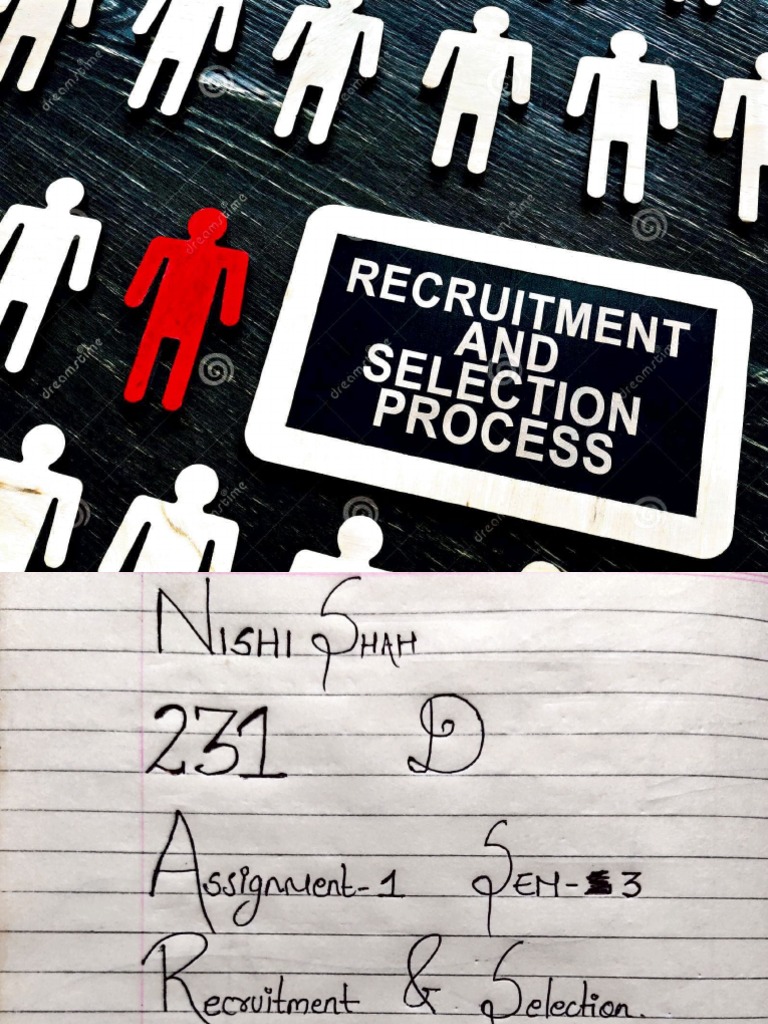 RECRUITMENT
AND
SELECTION
PROCESS
NISHI SHAH
231 D
Assignment-1 SEM-3
Recruitment & Selection.